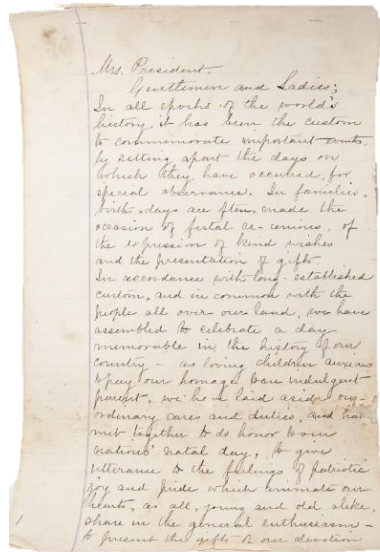 Mrs. President.
Gentlemen and Ladies;
In all epochs of the world's
history, it has been the custom
to commemorate important events,
by setting apart the days on
which they have occurred, for
special observance. In families,
birth-days are often made the
occasion of festal re-unions, of
the expression of kind wishes
and the presentation of gifts.
In accordance with long-established
custom, and in common with the
people all over our land, we have
assembled to celebrate a day
memorable in the history of our
country - as loving children anxious
to pay our homage to an indulgent
parent, we have laid aside our
ordinary cares and duties, and have
met together to do honor to our
nations' natal day, to give
utterance to the feelings of patriotic
joy and pride which animate our
hearts, as all, young and old alike,
share in the general enthusiasm -
to present the gifts of our devotion